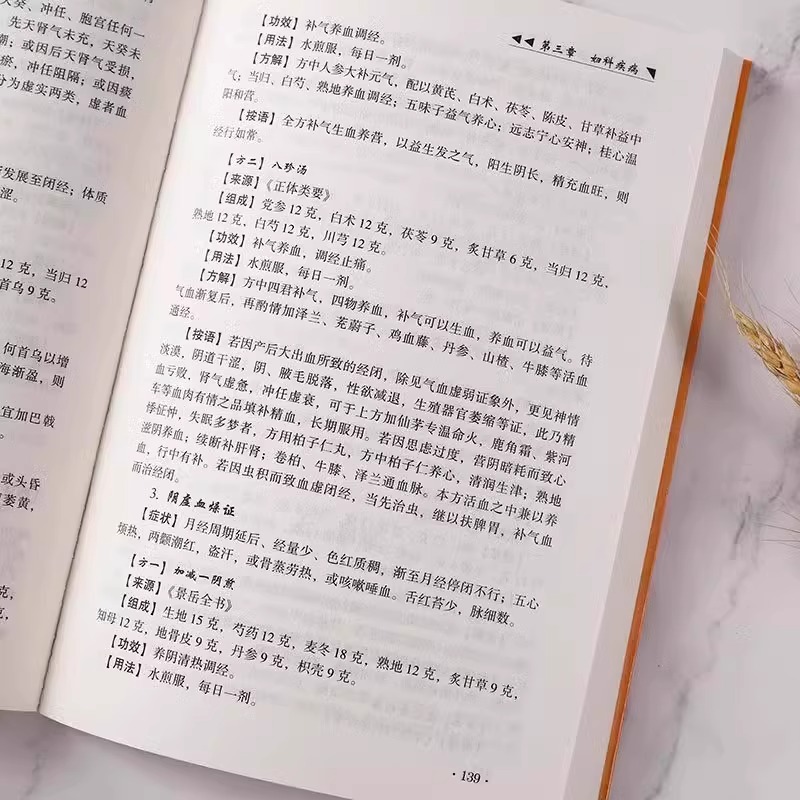 天癸、冲任、胞宫任何一
先天肾气未充，天癸未
潮；或因后天肾气受损，
瘀，冲任阻隔；或因痰
分为虚实两类，虚者血
发展至闭经；体质
涩。
12 克，当归 12
首乌 9 克。
何首乌以增
海渐盈，则
宜加巴戟
或头昏
萎黄，
克，
克。
◀◀ 第三章 妇科疾病
【功效】补气养血调经。
【用法】水煎服，每日一剂。
【方解】方中人参大补元气，配以黄芪、白术、茯苓、陈皮、甘草补益中
气；当归、白芍、熟地养血调经；五味子益气养心；远志宁心安神；桂心温
阳和营。
【按语】全方补气生血养营，以益生发之气，阳生阴长，精充血旺，则
经行如常。
【方二】八珍汤
【来源】《正体类要》
【组成】党参 12 克，白术 12 克，茯苓 9 克，炙甘草 6 克，当归 12 克，
熟地 12 克，白芍 12 克，川芎 12 克。
【功效】补气养血，调经止痛。
【用法】水煎服，每日一剂。
【方解】方中四君补气，四物养血，补气可以生血，养血可以益气。待
气血渐复后，再酌情加泽兰、茺蔚子、鸡血藤、丹参、山楂、牛膝等活血
通经。
【按语】若因产后大出血所致的经闭，除见气血虚弱证象外，更见神情
淡漠，阴道干涩，阴、腋毛脱落，性欲减退，生殖器官萎缩等证，此乃精
血亏败，肾气虚惫，冲任虚衰，可于上方加仙茅专温命火，鹿角霜、紫河
车等血肉有情之品填补精血，长期服用。若因思虑过度，营阴暗耗而致心
悸怔忡，失眠多梦者，方用柏子仁丸，方中柏子仁养心，清润生津；熟地
滋阴养血；续断补肝肾；卷柏、牛膝、泽兰通血脉。本方活血之中兼以养
血，行中有补。若因虫积而致血虚闭经，当先治虫，继以扶脾胃，补气血
而治经闭。
3. 阴虚血燥证
【症状】月经周期延后、经量少、色红质稠，渐至月经停闭不行；五心
烦热，两颧潮红，盗汗，或骨蒸劳热，或咳嗽唾血。舌红苔少，脉细数。
【方一】加减一阴煎
【来源】《景岳全书》
【组成】生地 15 克，芍药 12 克，麦冬 18 克，熟地 12 克，炙甘草 9 克，
知母 12 克，地骨皮 9 克，丹参 9 克，枳壳 9 克。
【功效】养阴清热调经。
【用法】水煎服，每日一剂。
· 139 ·